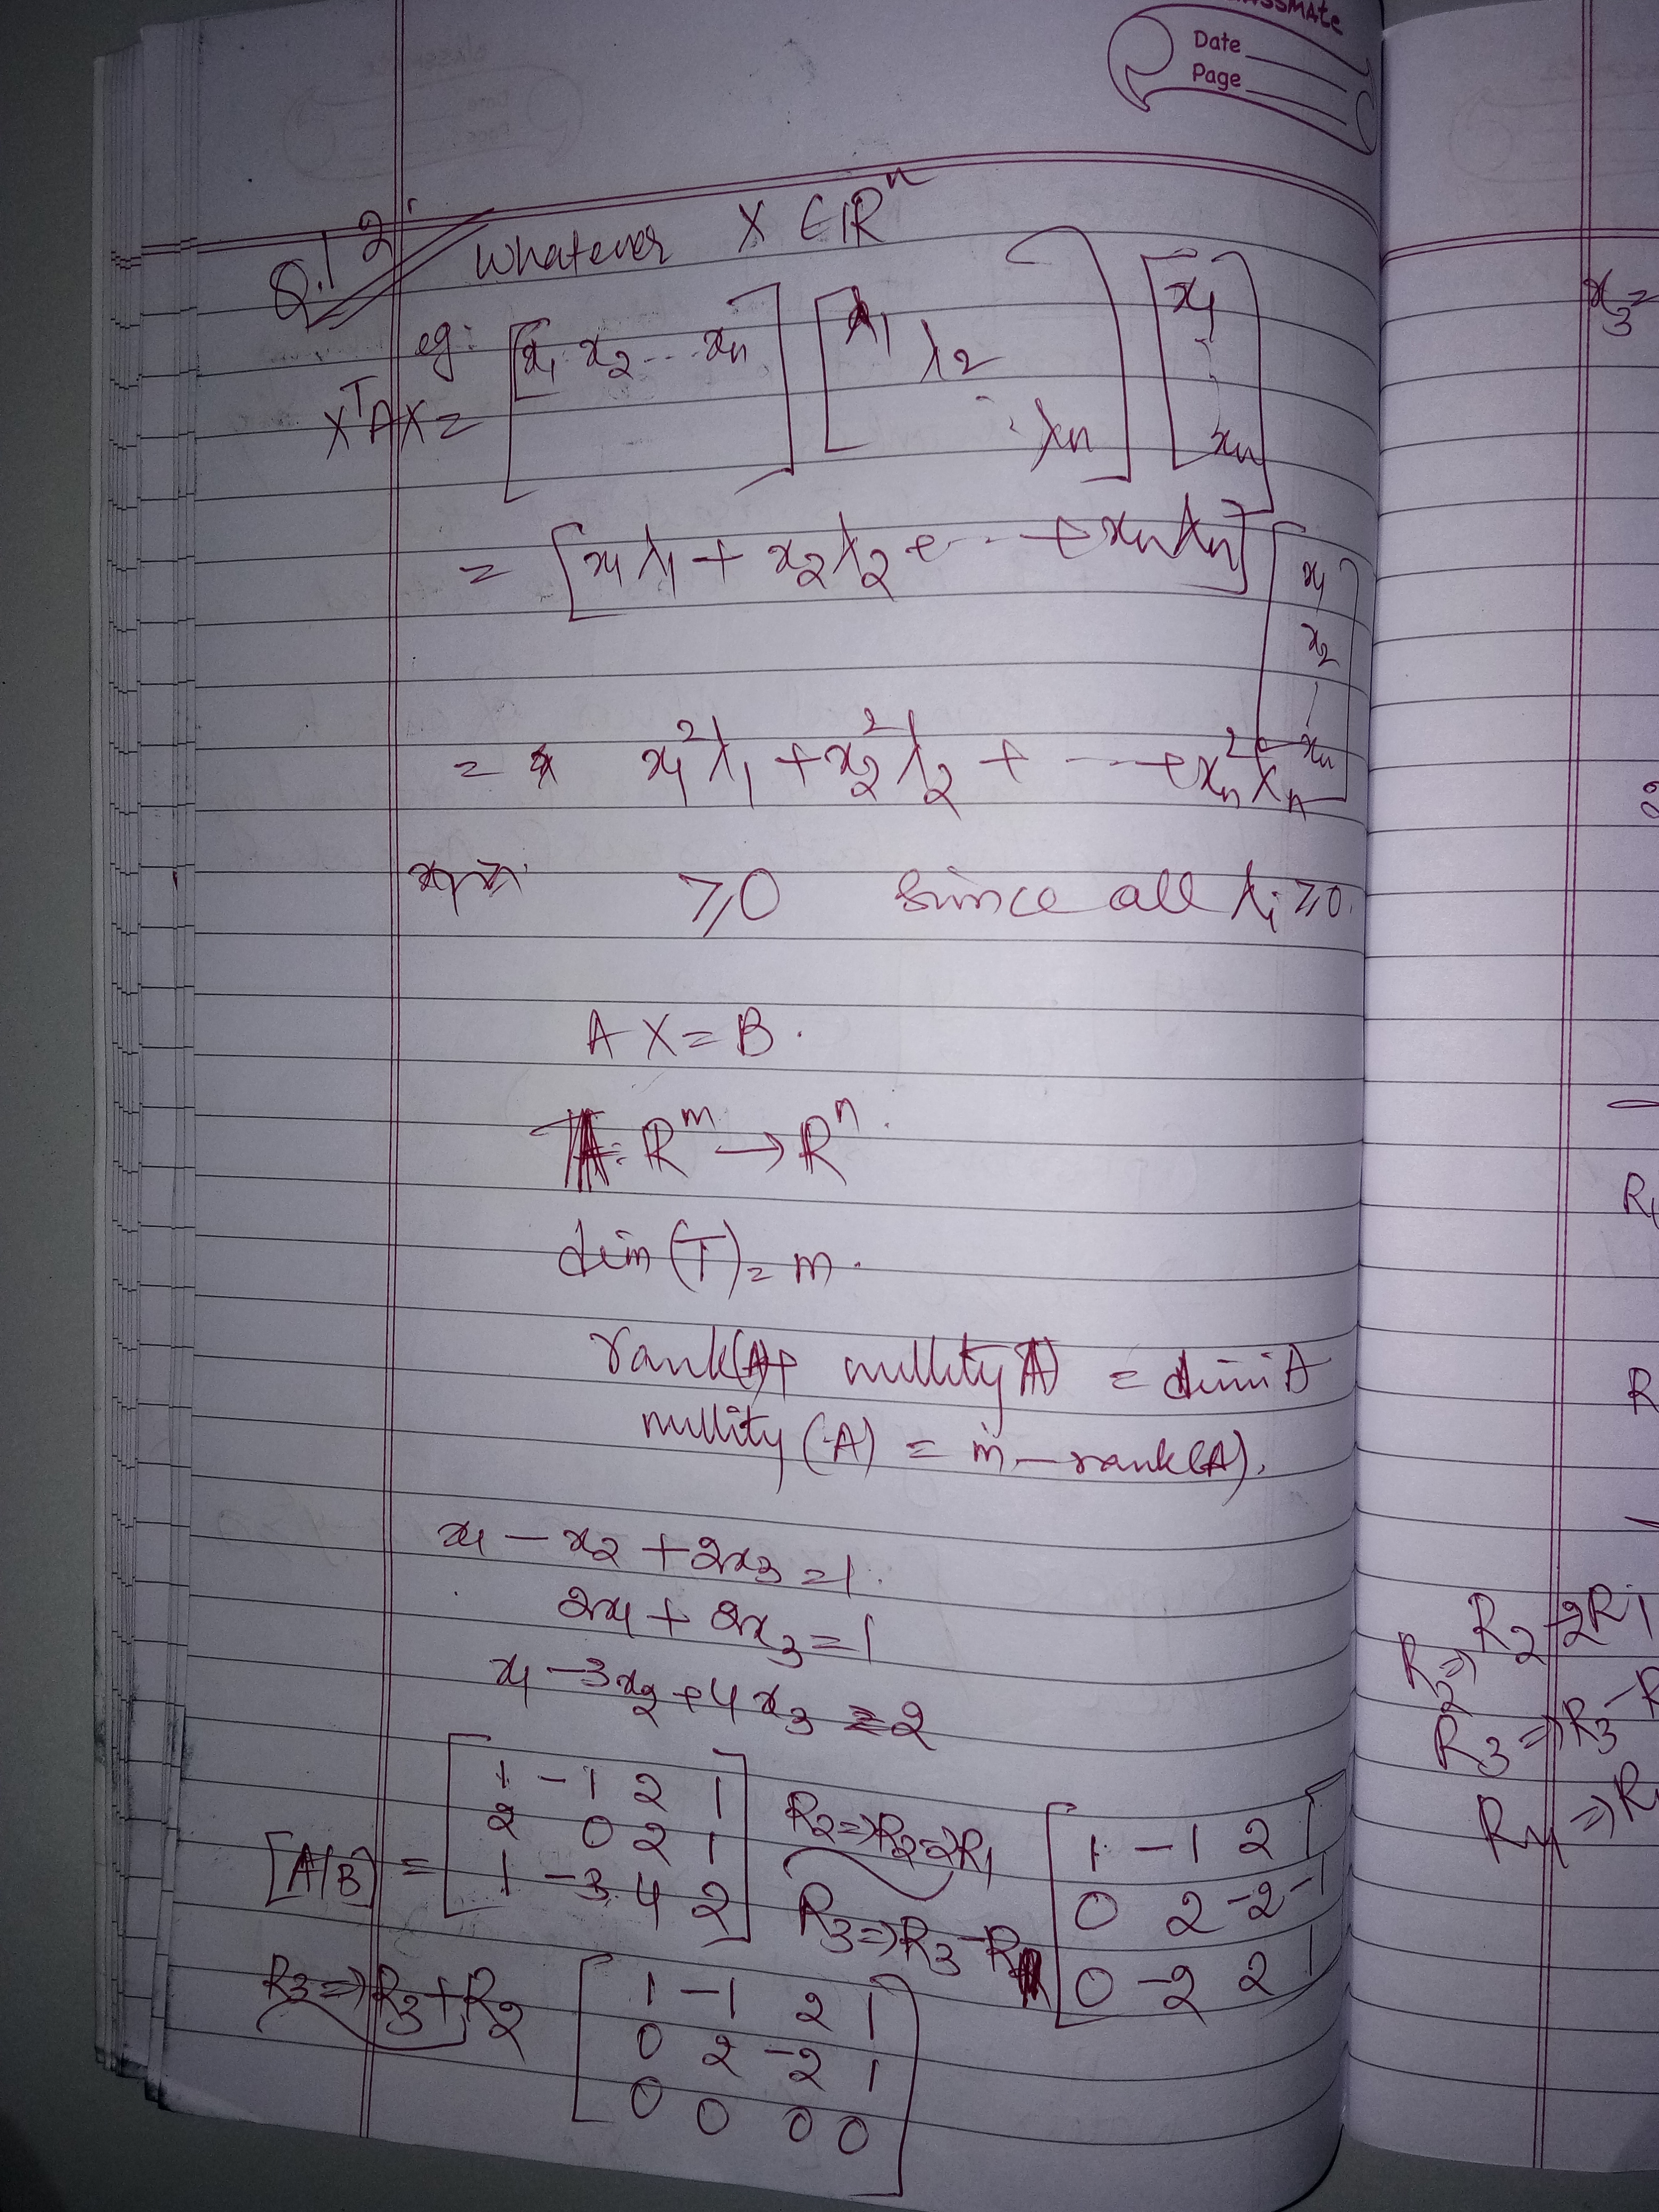 classmate
Date
Page
Q.1 2.
Whatever X ∈ IRⁿ
eg:
XᵀAX = [x₁ x₂ --- xₙ] [λ₁ λ₂ ⋱ λₙ] [x₁ ⋮ xₙ]
= [x₁λ₁ + x₂λ₂ + --- + xₙλₙ] [x₁ x₂ ⋮ xₙ]
= x₁²λ₁ + x₂²λ₂ + --- + xₙ²λₙ
≥ 0 since all λᵢ ≥ 0.
AX = B.
A: Rᵐ → Rⁿ.
dim (T) = m.
rank(A)+ nullity(A) = dim A
nullity (A) = m – rank(A).
x₁ – x₂ + 2x₃ = 1.
2x₁ + 2x₃ = 1
x₁ – 3x₂ + 4x₃ = 2
[A|B] = [1 -1 2 1
2 0 2 1
1 -3 4 2]
R₂ ⇒ R₂ - 2R₁
R₃ ⇒ R₃ - R₁
[1 -1 2 1
0 2 -2 -1
0 -2 2 1]
R₃ ⇒ R₃ + R₂
[1 -1 2 1
0 2 -2 1
0 0 0 0]
x₃ =
R
R₂ ⇒ R₂ - 2R₁
R₃ ⇒ R₃ - R
R₄ ⇒ R